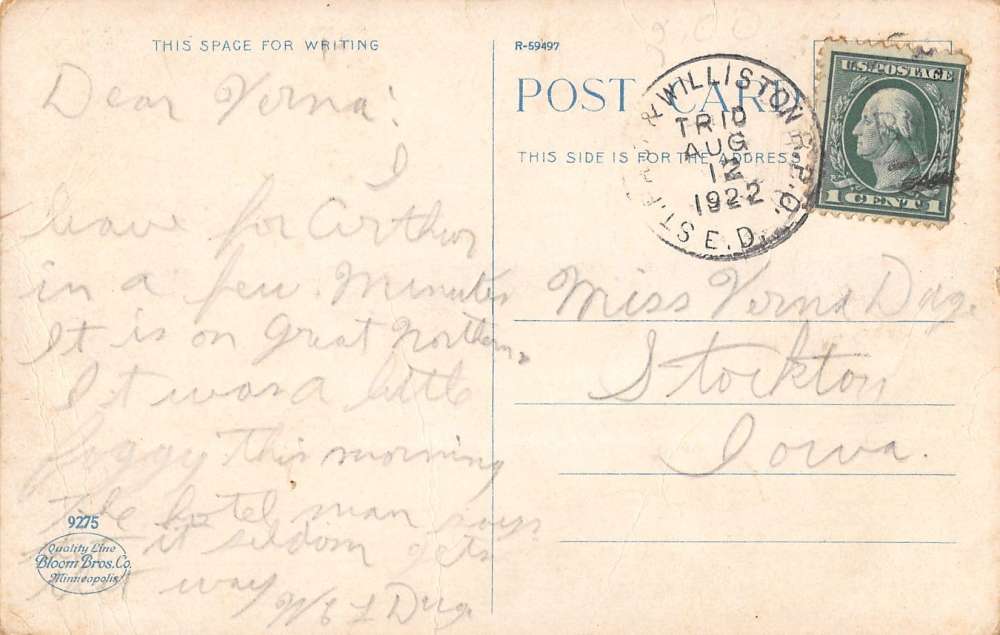 THIS SPACE FOR WRITING
Dear Verna:
I
leave for Arthur
in a few Minutes
It is on Great Northern
It was a little
foggy this morning
The hotel man says
that it seldom gets
that way
9275
Quality Line
Bloom Bros. Co.
Minneapolis
R-59497
POST CARD
THIS SIDE IS FOR THE ADDRESS
& WILLISTON R.P.O.
TR 10
AUG
12
1922
E.D.
U.S. POSTAGE
1 CENT 1
Miss Verna
Stockton
Iowa.